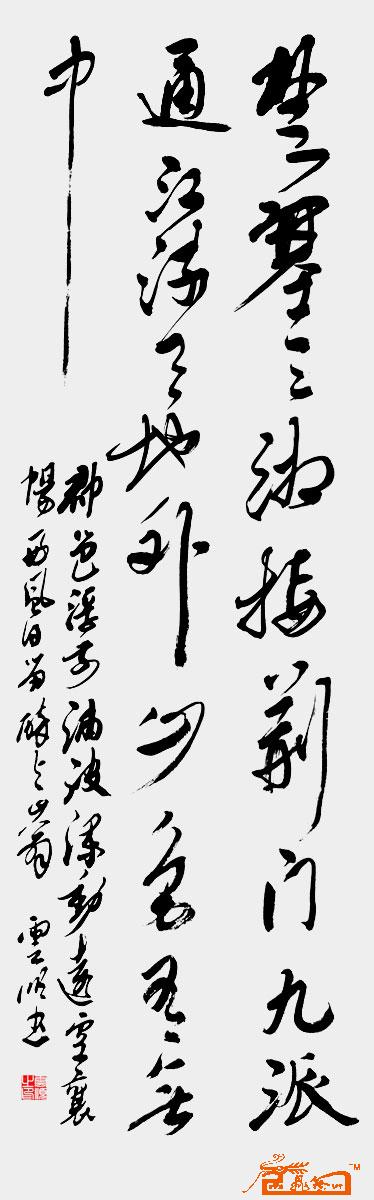 楚塞三湘接荆门九派
通江流天地外山色有无
中
郡邑浮前浦波澜動遠空襄
陽好風日留醉与山翁 雲順书